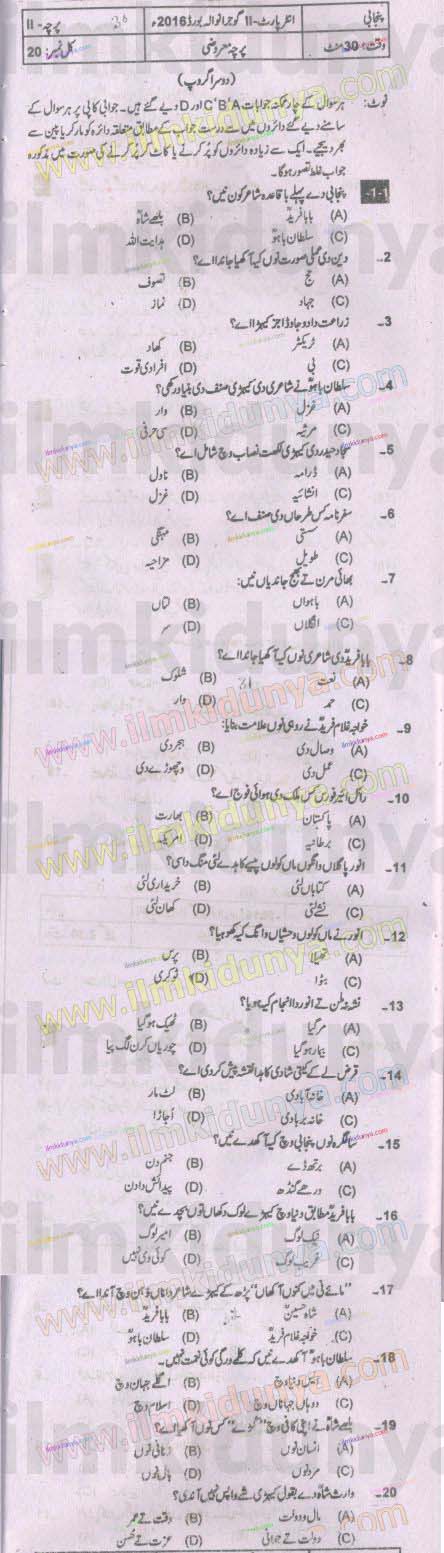 پنجابی انٹرپارٹ-II گوجرانوالہ بورڈ 2016ء پرچہ-II
وقت: 30 منٹ پرچہ معروضی کل نمبر: 20
(دوسرا گروپ)
نوٹ: ہر سوال کے چار ممکنہ جوابات A'B'C اور D دیے گئے ہیں۔ جوابی کاپی پر ہر سوال کے
سامنے دیے گئے دائروں میں سے درست جواب کے مطابق متعلقہ دائرہ کو مارکر یا پین سے
بھر دیجیے۔ ایک سے زیادہ دائروں کو پُر کرنے یا کاٹ کر پُر کرنے کی صورت میں مذکورہ
جواب غلط تصور ہوگا۔
1-1- پنجابی دے پہلے باقاعدہ شاعر کون نیں؟
(A) بابا فریدؒ (B) بلھے شاہؒ
(C) سلطان باہوؒ (D) ہدایت اللہ
2- دین دی عملی صورت نوں کیہ آکھیا جاندا اے؟
(A) حج (B) تصوف
(C) جہاد (D) نماز
3- زراعت دا ودھا وڈا جز کیہڑا اے؟
(A) ٹریکٹر (B) کھاد
(C) بی (D) افرادی قوت
4- سلطان باہوؒ نے شاعری دی کیہڑی صنف دی بنیاد رکھی؟
(A) غزل (B) وار
(C) مرثیہ (D) سی حرفی
5- سجاد حیدر دی کیہڑی لکھت نصاب وچ شامل اے؟
(A) ڈرامہ (B) ناول
(C) انشائیہ (D) غزل
6- سفرنامہ کس طرحاں دی صنف اے؟
(A) سستی (B) مہنگی
(C) طویل (D) مزاحیہ
7- بھائی مرن تے بھج جاندیاں نیں:
(A) باہواں (B) لتاں
(C) انگلاں (D) سر
8- بابا فریدؒ دی شاعری نوں کیہ آکھیا جاندا اے؟
(A) نعت (B) شلوک
(C) حمد (D) وار
9- خواجہ غلام فریدؒ نے روہی نوں علامت بنایا:
(A) وصال دی (B) ہجر دی
(C) عمل دی (D) وچھوڑے دی
10- رائل ائیر فورس کس ملک دی ہوائی فوج اے؟
(A) پاکستان (B) بھارت
(C) برطانیہ (D) امریکہ
11- انور پاگلاں وانگوں ماں کولوں پیسے کاہدے لئی منگ داسی؟
(A) کتاباں لئی (B) خریداری لئی
(C) نشے لئی (D) کھان لئی
12- انور نے ماں کولوں وحشیاں وانگ کیہ کھوہیا؟
(A) تھیلا (B) پرس
(C) بٹوا (D) ٹوکری
13- نشہ نہ ملن تے انور دا انجام کیہ ہویا؟
(A) مر گیا (B) ٹھیک ہو گیا
(C) بیمار ہو گیا (D) چوریاں کرن لگ پیا
14- قرض لے کے کیتی شادی کاہدا نقشہ پیش کردی اے؟
(A) خانہ آبادی (B) لٹ مار
(C) خانہ بربادی (D) اُجاڑا
15- سالگرہ نوں پنجابی وچ کیہ آکھدے نیں؟
(A) برتھ ڈے (B) جنم دن
(C) ورھے گنڈھ (D) پیدائش دا دن
16- بابا فریدؒ مطابق دنیا وچ کیہڑے لوک دکھاں توں بچدے نیں؟
(A) نیک لوک (B) امیر لوک
(C) غریب لوک (D) کوئی وی نہیں
17- "مائے نی میں کنوں آکھاں" پڑھ کے کیہڑے شاعر دا ناں ذہن وچ آندا اے؟
(A) شاہ حسینؒ (B) بابا فریدؒ
(C) خواجہ غلام فریدؒ (D) سلطان باہوؒ
18- سلطان باہوؒ آکھدے نیں کہ کلمے ورگی کوئی نعمت نہیں۔
(A) ایس دنیا وچ (B) اگلے جہان وچ
(C) دوہاں جہاناں وچ (D) اسلام وچ
19- بلھے شاہؒ نے اپنی کافی وچ "کڑے" کس نوں آکھیا اے؟
(A) انسان نوں (B) زنانی نوں
(C) مرد نوں (D) بال نوں
20- وارث شاہؒ دے بقول کیہڑی شے واپس نہیں آندی؟
(A) مال و دولت (B) وقت تے عمر
(C) دولت تے جوانی (D) عزت تے حُسن
ilmkidunya.com
www.ilmkidunya.com